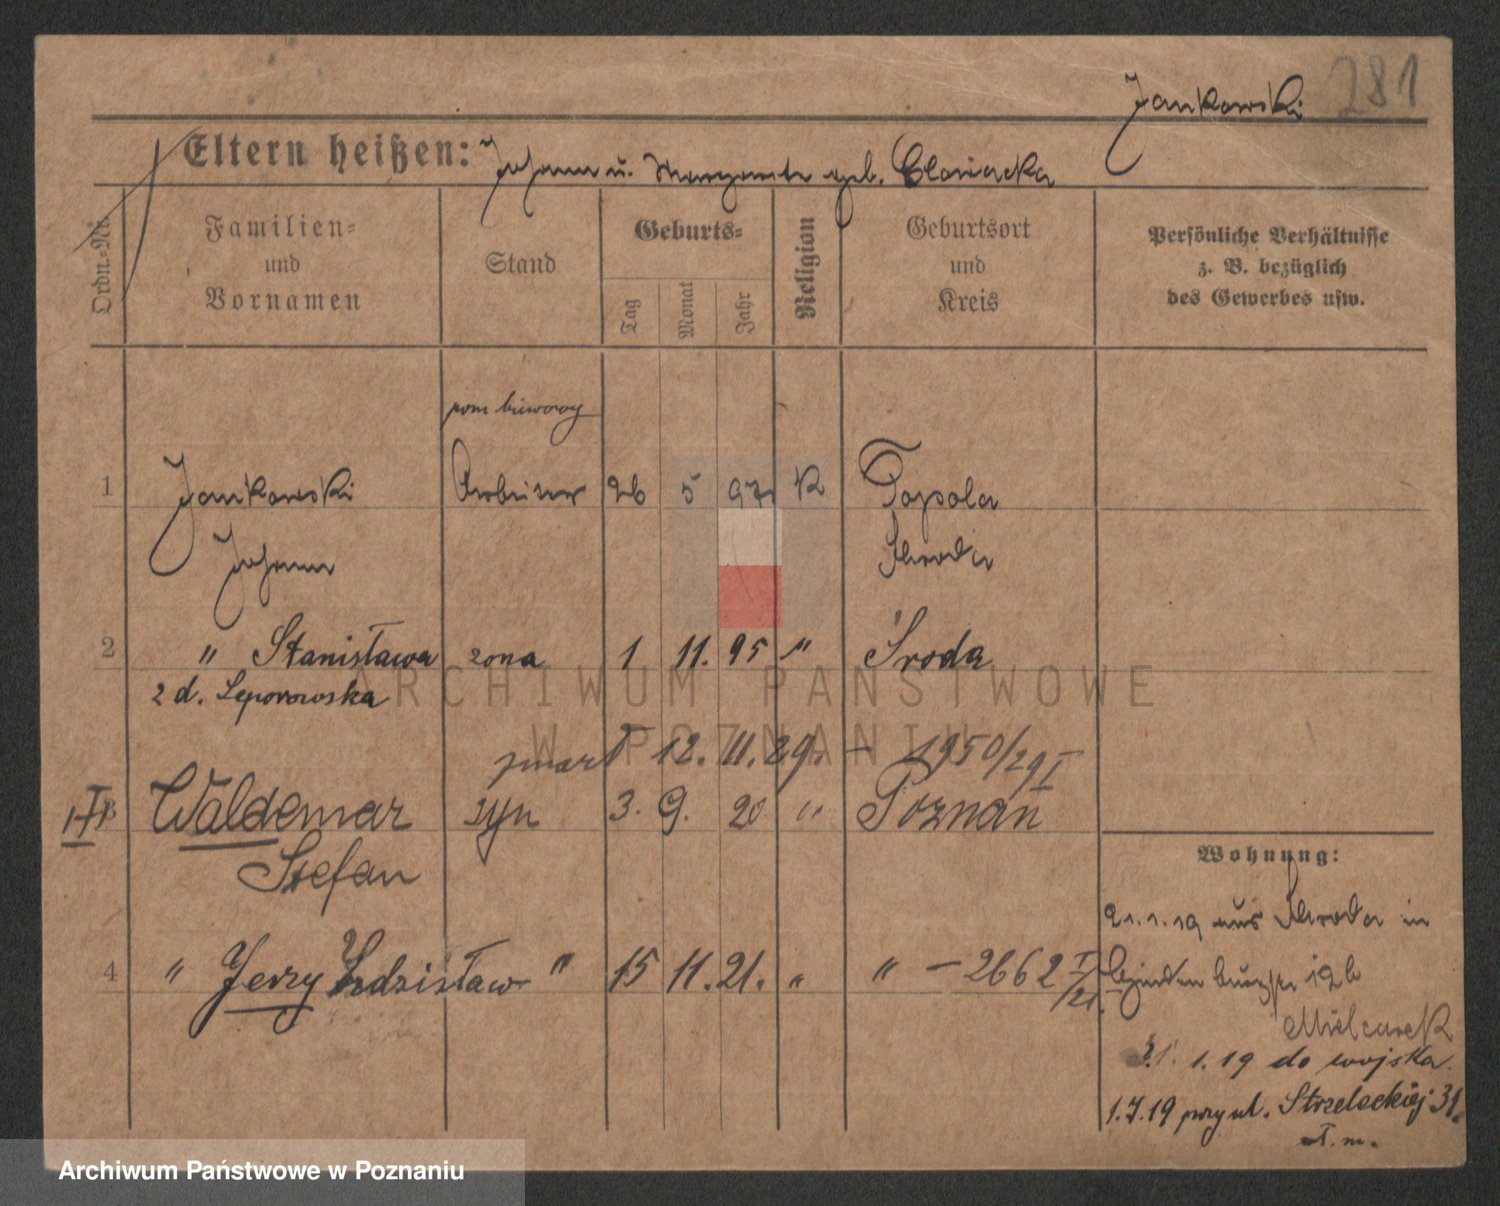 281
Jankowski
Eltern heißen: Johann u. Margarete geb.
Ordn.-Nr.
Familien- und Vornamen
Stand
Geburts-
Tag
Monat
Jahr
Religion
Geburtsort und Kreis
Persönliche Verhältnisse z. B. bezüglich des Gewerbes usw.
pom biurowy
1 Jankowski Arbeiter 26 5 97 K Topola
Johann Schroda
2 " Stanisława żona 1 11. 95 " Środa
z d. Leporowska
zmarł 12. 11. 29. - 1950/29 I
3 Waldemar syn 3. 9. 20 " Poznań
Stefan
4 " Jerzy Zdzisław " 15 11. 21. " " - 2662 I/21.
Wohnung:
21.1.19 aus Schroda in
19b
Mielcarek
31. 1. 19 do wojska
1.7.19 przy ul. Strzeleckiej 31.
t. m.
ARCHIWUM PAŃSTWOWE
W POZNANIU
Archiwum Państwowe w Poznaniu